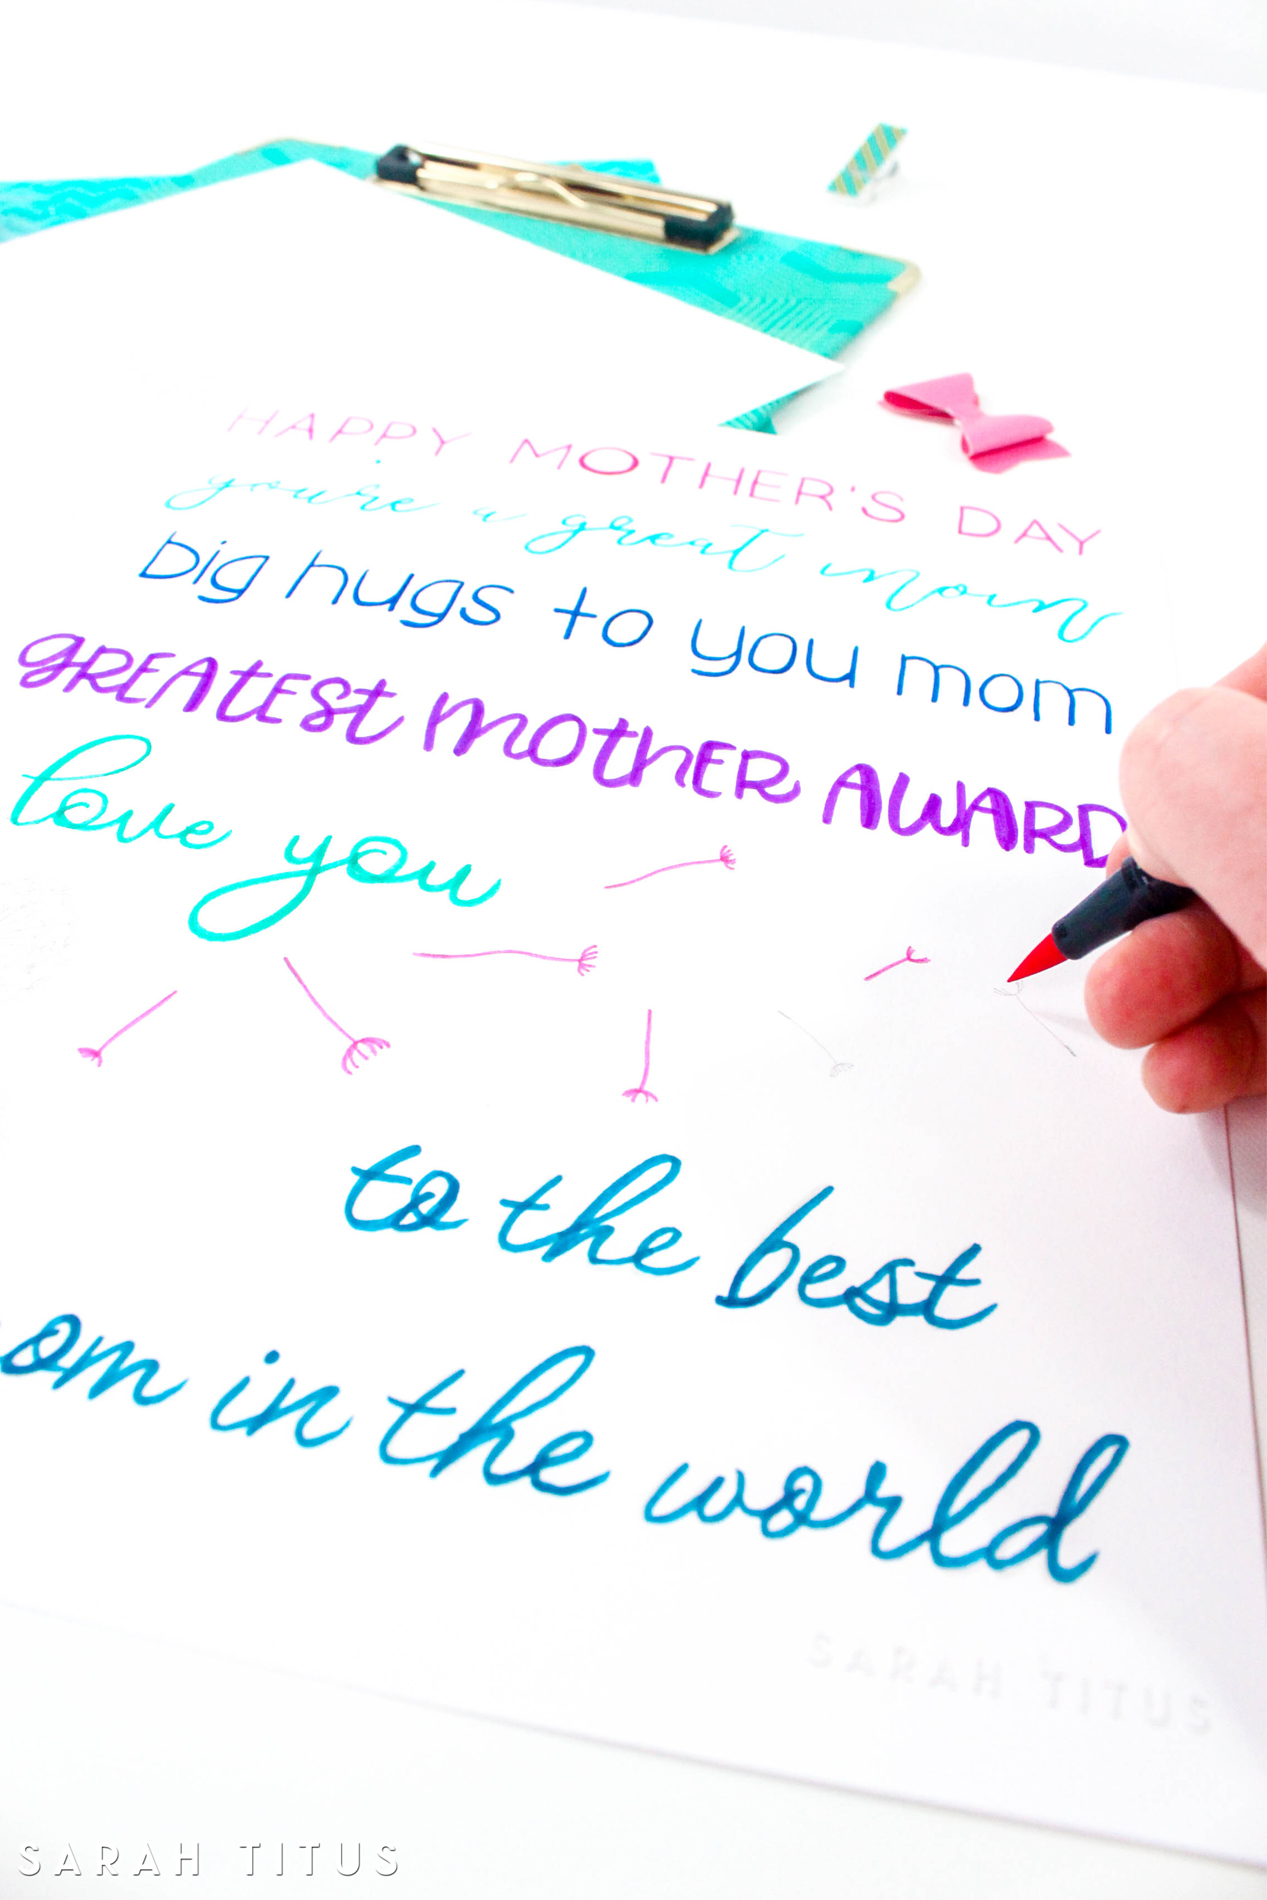 HAPPY MOTHER'S DAY
you're a great mom
big hugs to you mom
GREATEST MOTHER AWARD
love you
to the best
om in the world
SARAH TITUS
SARAH TITUS